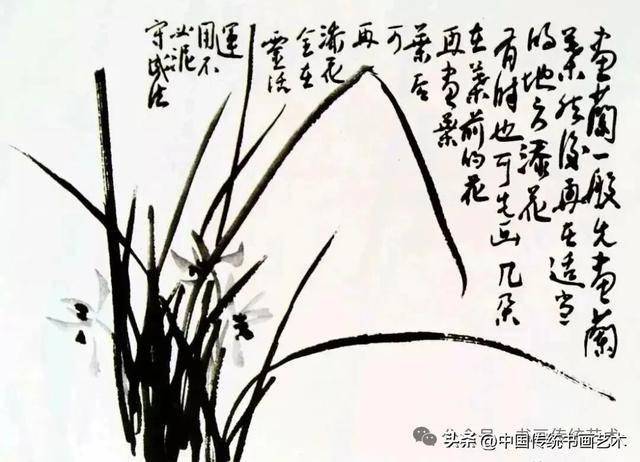 画兰一般先画兰
叶然后再在适当
的地方添花
有时也可先画几朵
在叶前的花
再画叶
叶后
可
再
添花
全在
灵活
运
用不
必泥
守成法
公众号·书画传统艺术
头条@中国传统书画艺术